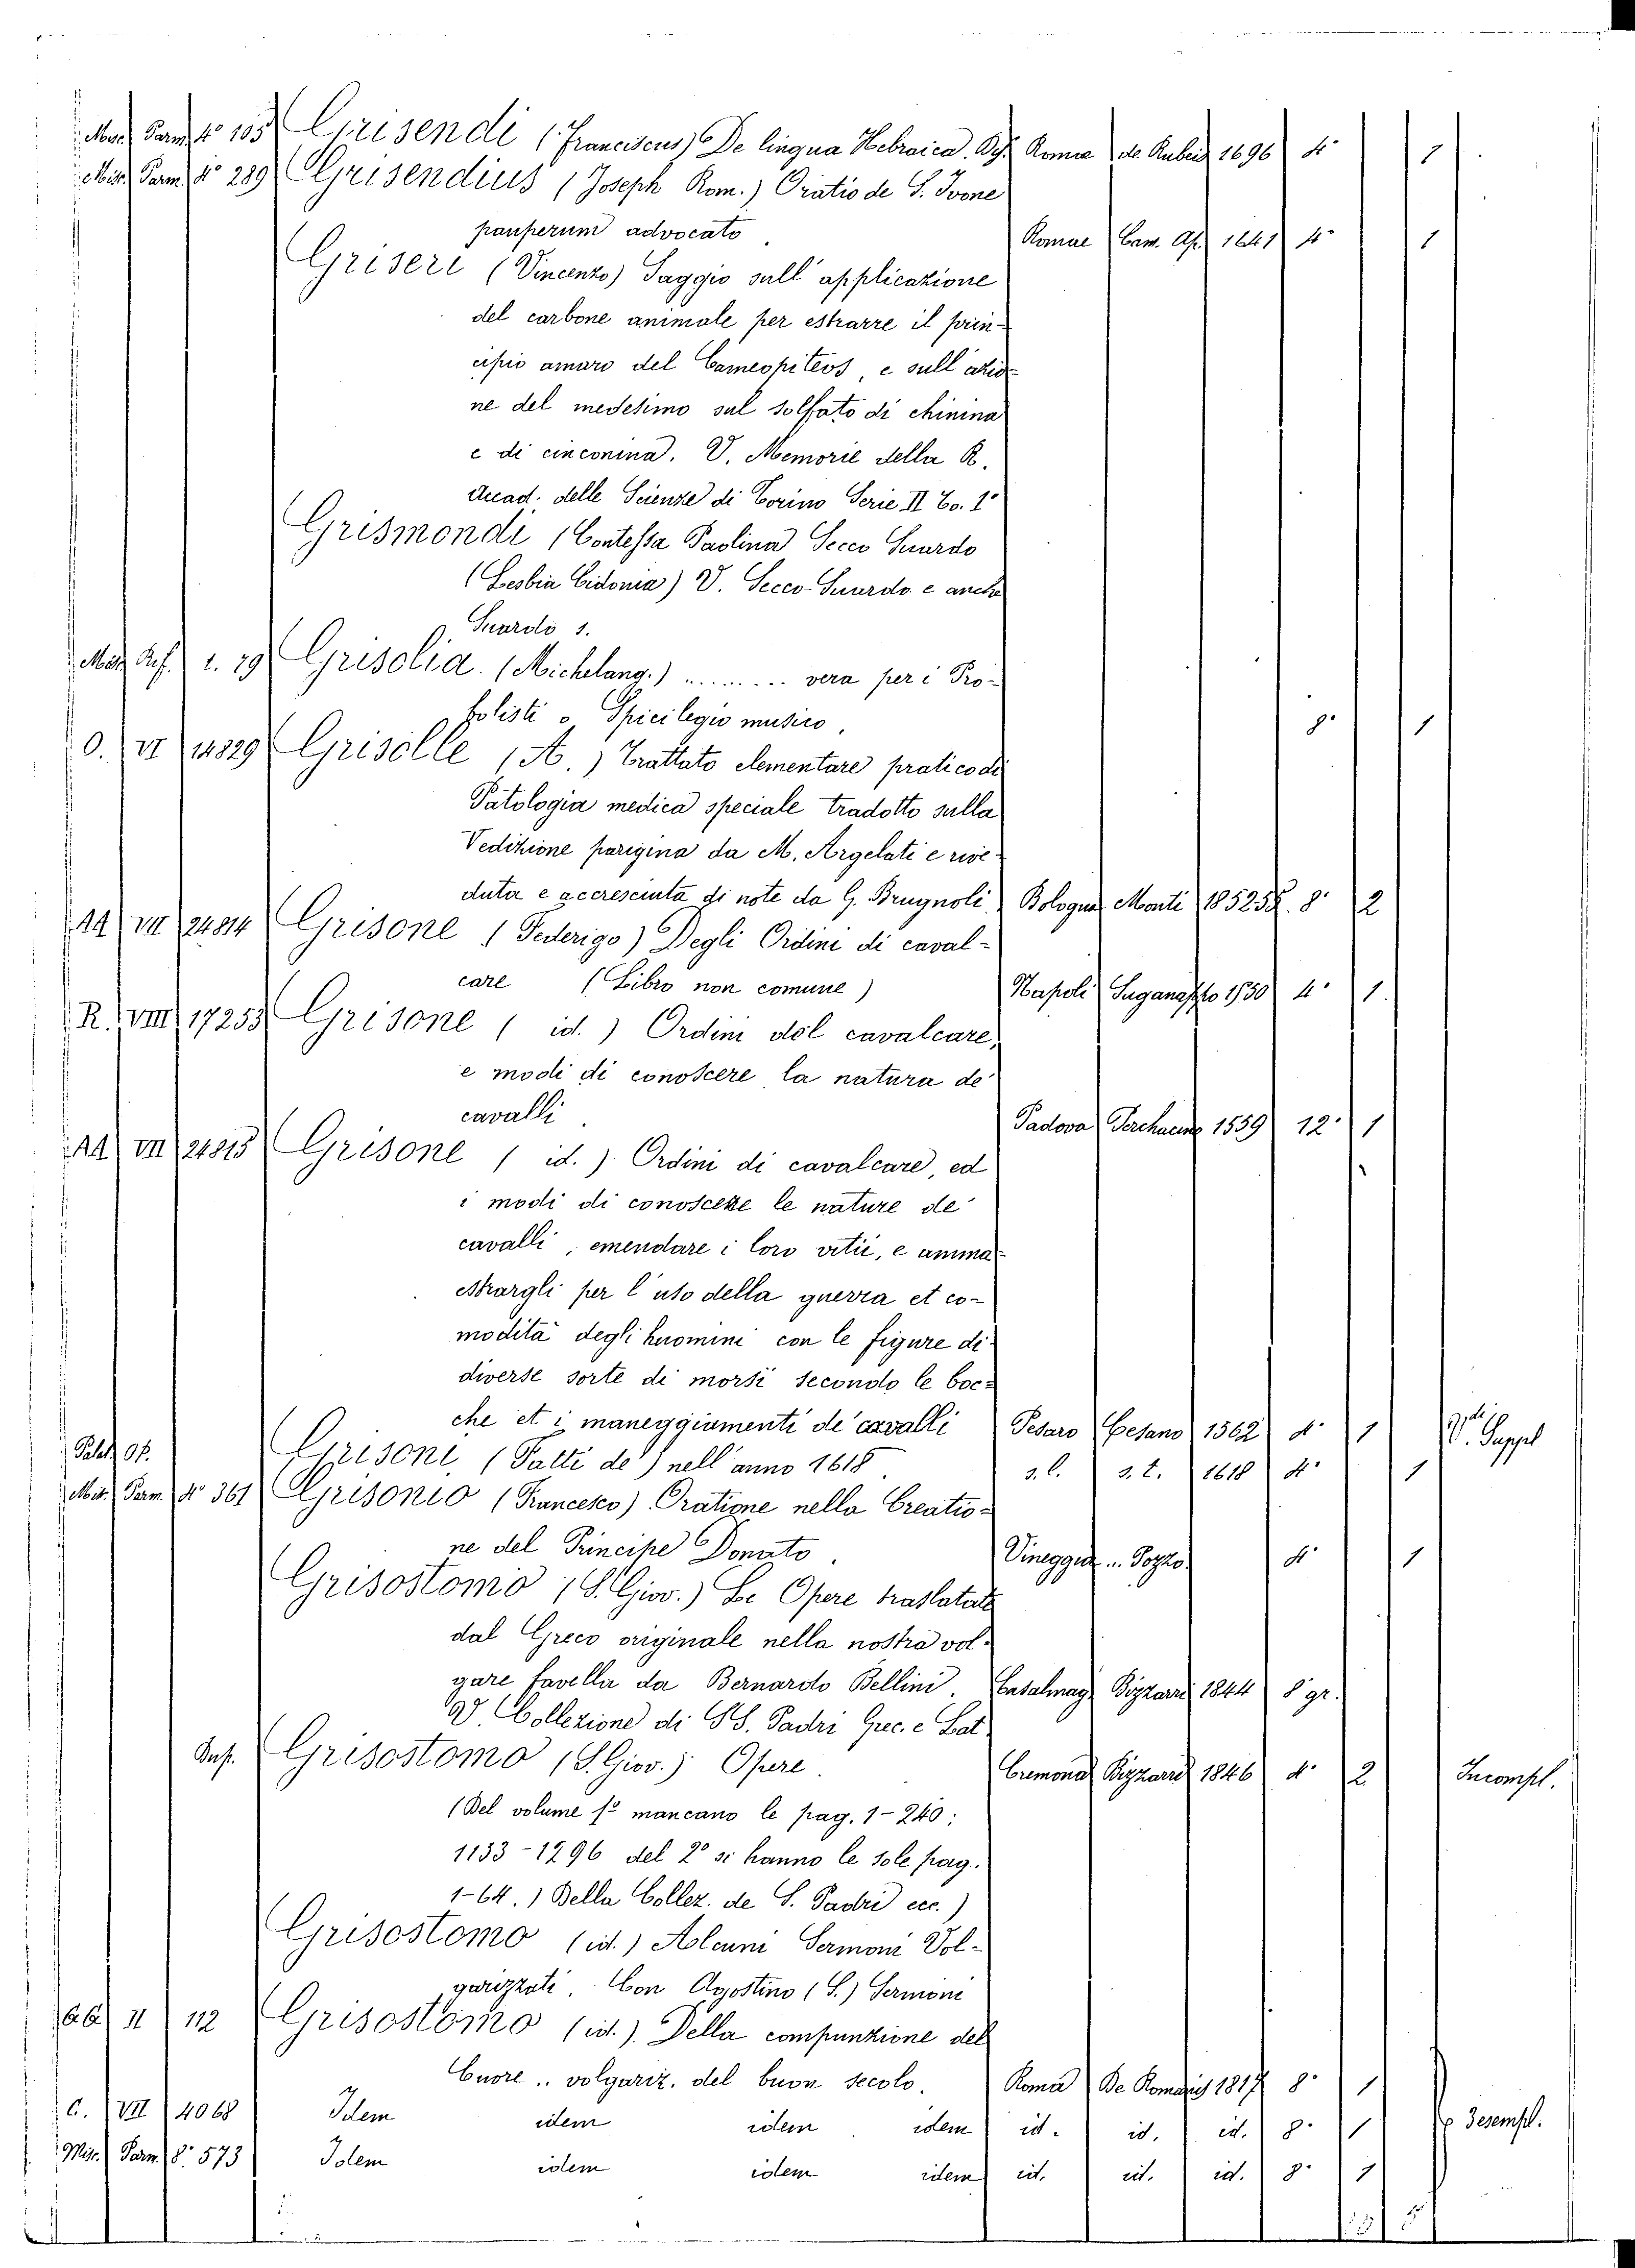 Misc. Parm. 4° 105 Grisendi (Franciscus) De lingua Hebraica. Romae de Rubeis 1696 4° 1
Misc. Parm. 4° 289 Grisendius (Joseph Rom.) Oratio de S. Ivone
pauperum advocato Romae Cam. Ap. 1641 4° 1
Griseri (Vincenzo) Saggio sull' applicazione
del carbone animale per estrarre il prin-
cipio amaro del Cameopiteos, e sull' azio-
ne del medesimo sul solfato di chinina
e di cinconina. V. Memorie della R.
Accad. delle Scienze di Torino Serie II To. 1°
Grismondi (Contessa Paolina Secco Suardo
(Lesbia Cidonia) V. Secco-Suardo e anche
Suardo 1.
r. 29 Grisolia (Michelang.) ......... vera per i Pro-
bolisti o Spicilegio musico, 8° 1
O. VI 14829 Grisolle (A.) Trattato elementare pratico di
Patologia medica speciale tradotto sulla
V edizione parigina da M. Argelati e rive-
duta e accresciuta di note da G. Brugnoli. Bologna Monti 1852 8° 2
AA VII 24814 Grisone (Federigo) Degli Ordini di caval-
care (Libro non comune) Napoli Suganappo 1550 4° 1.
R. VIII 17253 Grisone ( id. ) Ordini del cavalcare,
e modi di conoscere la natura de'
cavalli Padova 1559 12° 1
AA VII 24815 Grisone ( id. ) Ordini di cavalcare, ed
i modi di conoscere le nature de'
cavalli, emendare i loro vitii, e amma-
estrargli per l' uso della guerra et co-
modità degli huomini con le figure di
diverse sorte di morsi secondo le boc-
che et i maneggiamenti de' cavalli Pesaro Cesano 1562 4° 1 V. Suppl
Grisoni (Fatti de') nell' anno 1618 s. l. s. t. 1618 4° 1
Misc. Parm. 4° 361 Grisonio (Francesco) Oratione nella Creatio-
ne del Principe Donato. Vineggia .. 4° 1
Grisostomo (S. Giov.) Le Opere traslatate
dal Greco originale nella nostra vol-
gare favella da Bernardo Bellini. Casalmag. Bizzarri 1844 8 gr.
V. Collezione di SS. Padri Grec. e Lat.
Grisostomo (S. Giov.) Opere. Cremona Bizzarri 1846 4° 2 Incompl.
(Del volume 1° mancano le pag. 1-240;
1133-1296 del 2° si hanno le sole pag.
1-64.) Della Collez. de S. Padri ecc.)
Grisostomo (id.) Alcuni Sermoni Vol-
garizzati. Con Agostino (S.) Sermoni
II 112 Grisostomo (id.) Della compunzione del
Cuore .. volgariz. del buon secolo. Roma De Romanis 1817 8° 1
C. VII 4068 Idem idem idem idem id. id. id. 8° 1 3 esempl.
Misc. Parm. 8° 573 Idem idem idem idem id. id. id. 8° 1